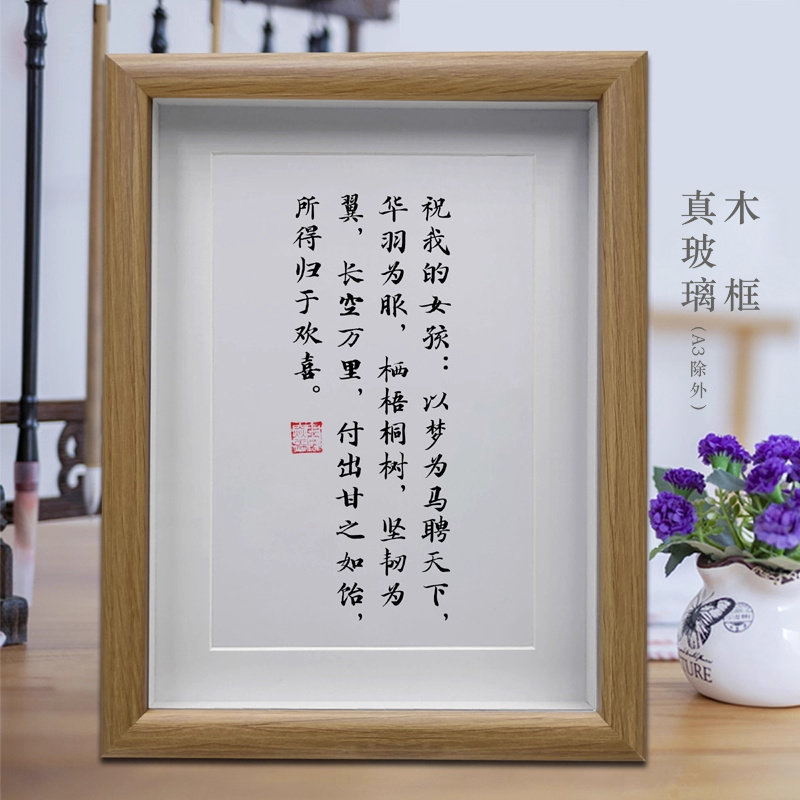 祝我的女孩：以梦为马聘天下，
华羽为服，栖梧桐树，坚韧为
翼，长空万里，付出甘之如饴，
所得归于欢喜。
木框
真玻璃(A3除外)
TURE